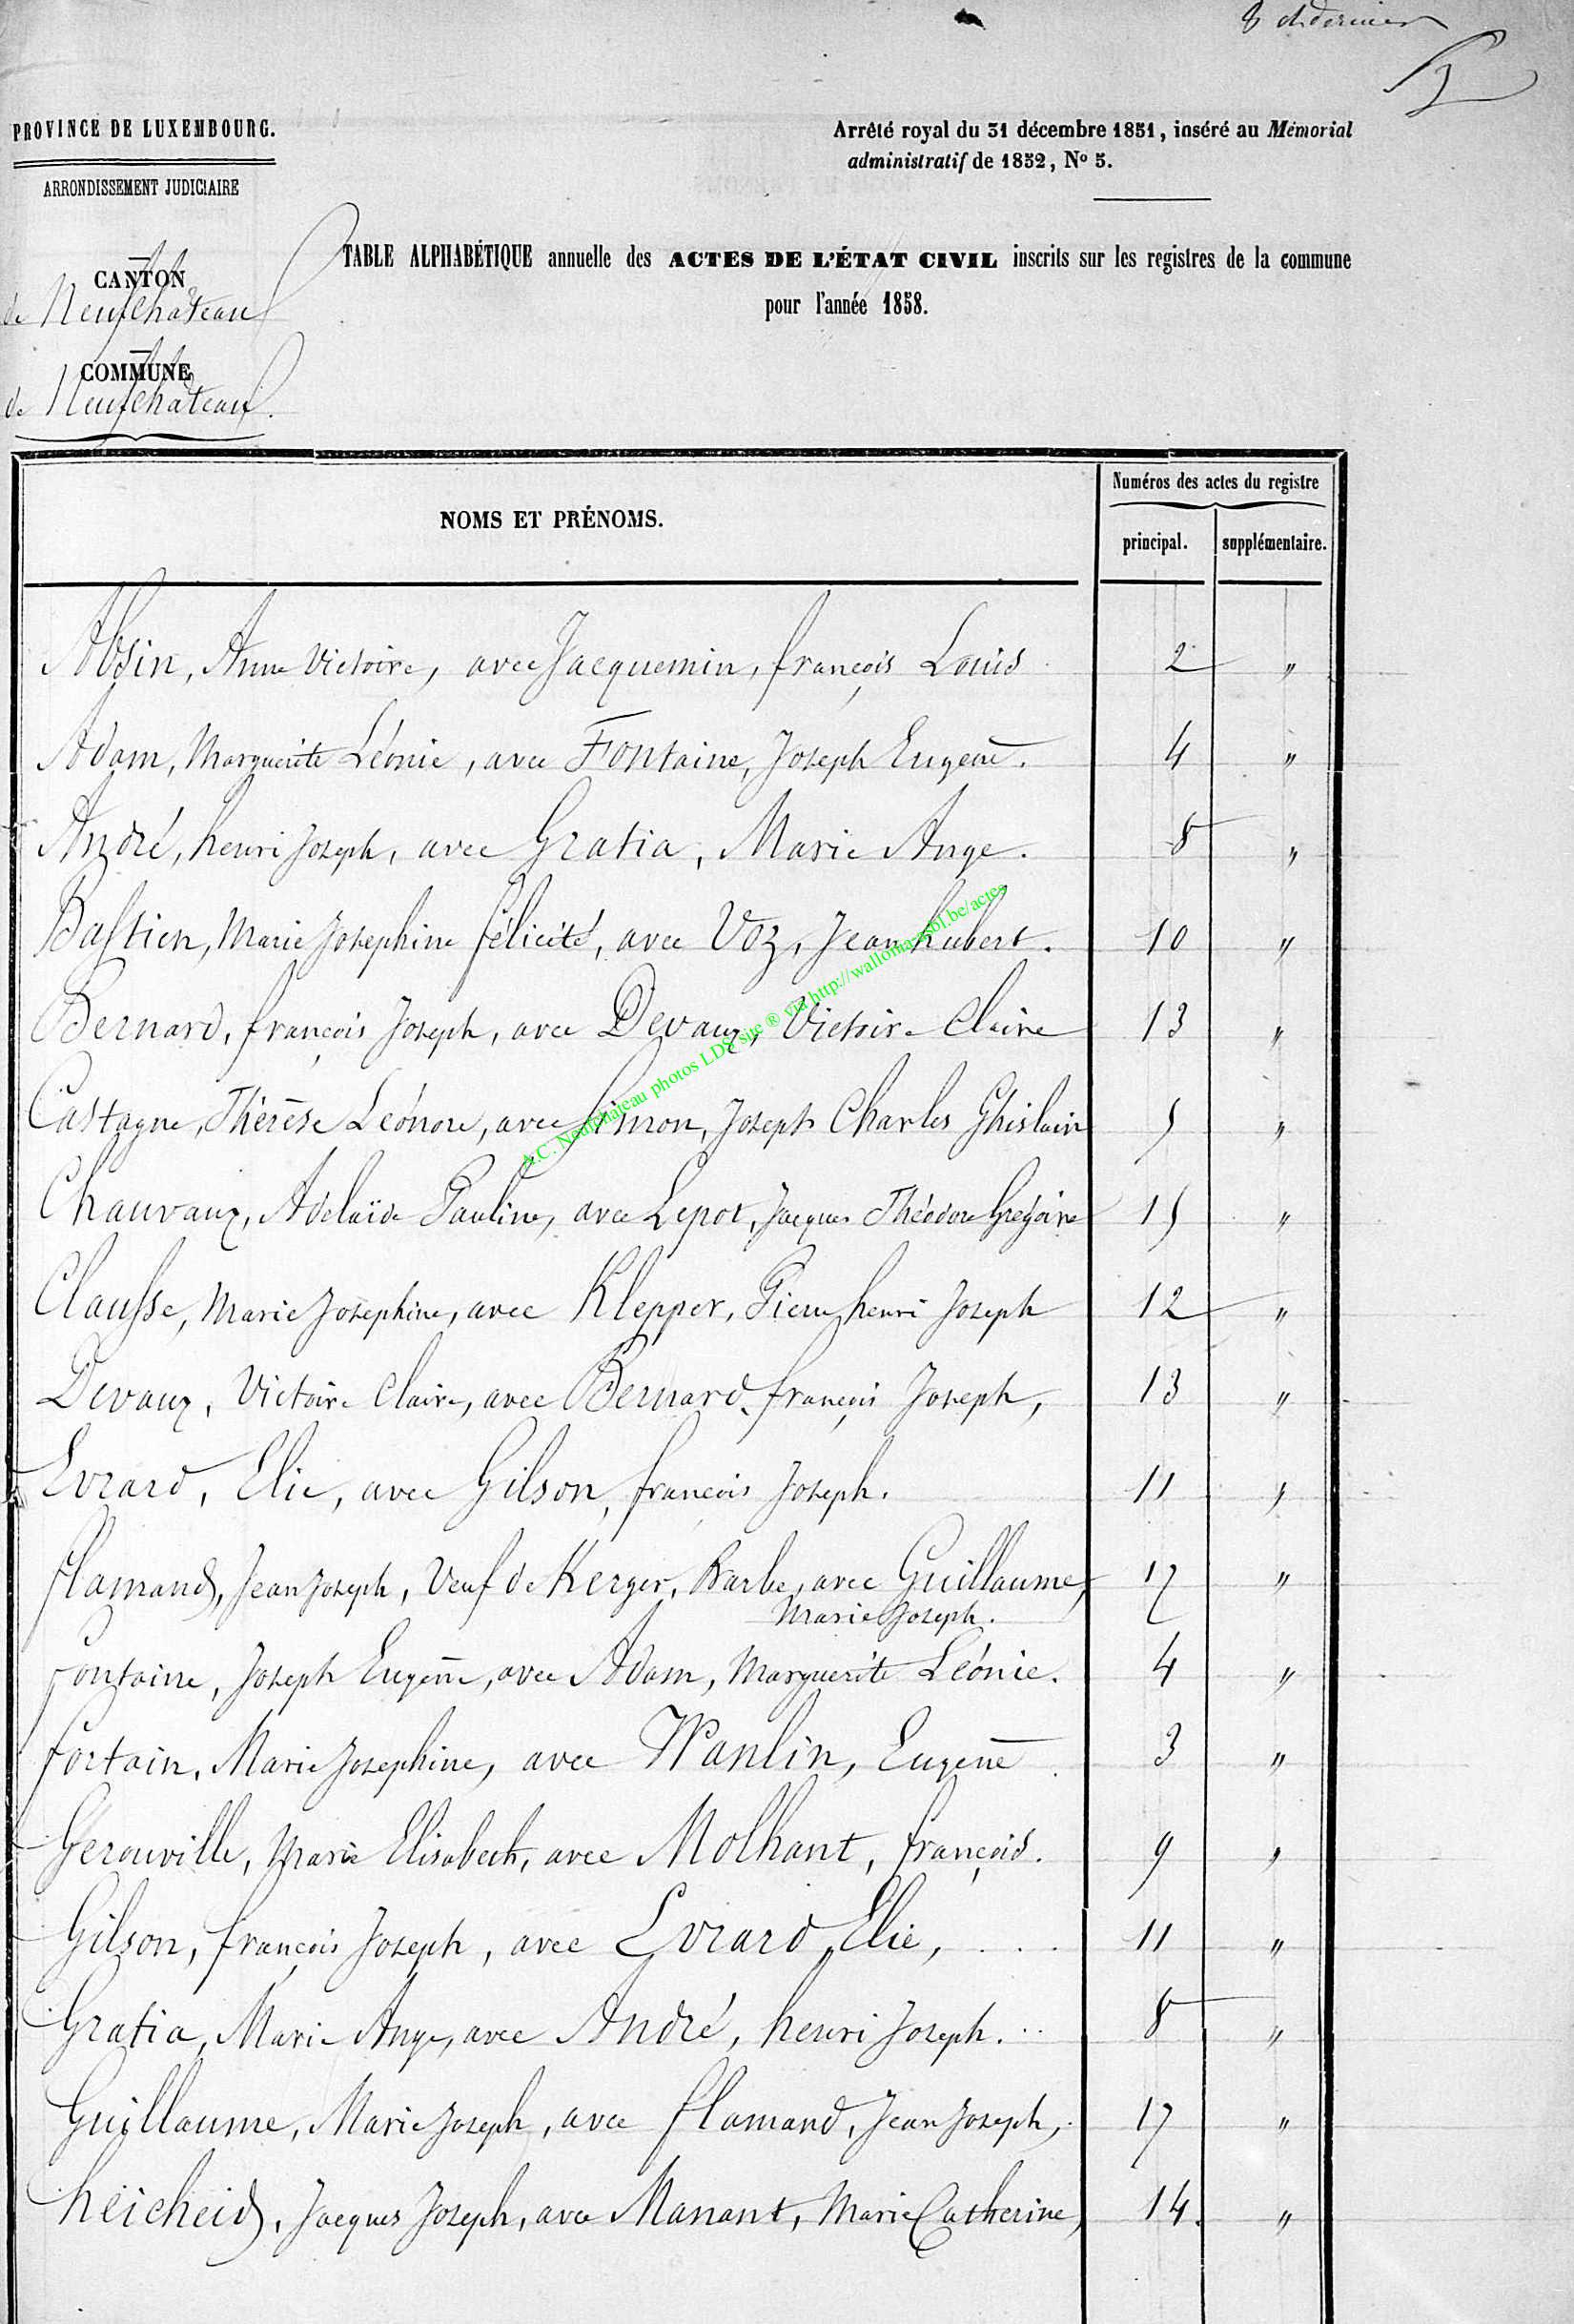 8 et dernier
PROVINCE DE LUXEMBOURG.
Arrêté royal du 31 décembre 1851, inséré au Mémorial
administratif de 1852, No 5.
ARRONDISSEMENT JUDICIAIRE
TABLE ALPHABÉTIQUE annuelle des ACTES DE L'ÉTAT CIVIL inscrits sur les registres de la commune
pour l'année 1858.
CANTON
de Neufchateau
COMMUNE
de Neufchâteau.
NOMS ET PRÉNOMS.
Numéros des actes du registre
principal. supplémentaire.
Absin, Anne Victoire, avec Jacquemin, françois Louis 2 "
Adam, Marguerite Léonie, avec Fontaine, Joseph Eugene. 4 "
André, henri Joseph, avec Gratia, Marie Ange. 8 "
Bastien, Marie Josephine félicité, avec Voz, Jean hubert. 10 "
Bernard, françois Joseph, avec Devaux, Victoire Claire 13 "
Castagne, Thérèse Léonore, avec Simon, Joseph Charles Ghislain 5 "
Chauvaux, Adelaïde Pauline, avec Lepot, Jacques Théodore Grégoire 15 "
Clausse, Marie Josephine, avec Klepper, Pierre henri Joseph 12 "
Devaux, Victoire Claire, avec Bernard, françois Joseph, 13 "
Evrard, Elie, avec Gilson, françois Joseph. 11 "
flamand, Jean Joseph, Veuf de Kerger, Barbe, avec Guillaume, 17 "
Marie Joseph.
fontaine, Joseph Eugene, avec Adam, Marguerite Léonie. 4 "
fortain, Marie Josephine, avec Wanlin, Eugene 3 "
Gerouville, Marie Elisabeth, avec Molhant, françois. 9 "
Gilson, françois Joseph, avec Evrard, Elie, . . . 11 "
Gratia, Marie Ange, avec André, henri Joseph. .. 8 "
Guillaume, Marie Joseph, avec flamand, Jean Joseph, 17 "
heicheid, Jacques Joseph, avec Manant, Marie Catherine, 14. "
A.C. Neufchateau photos LDS site ® via http://wallonia-asbl.be/actes